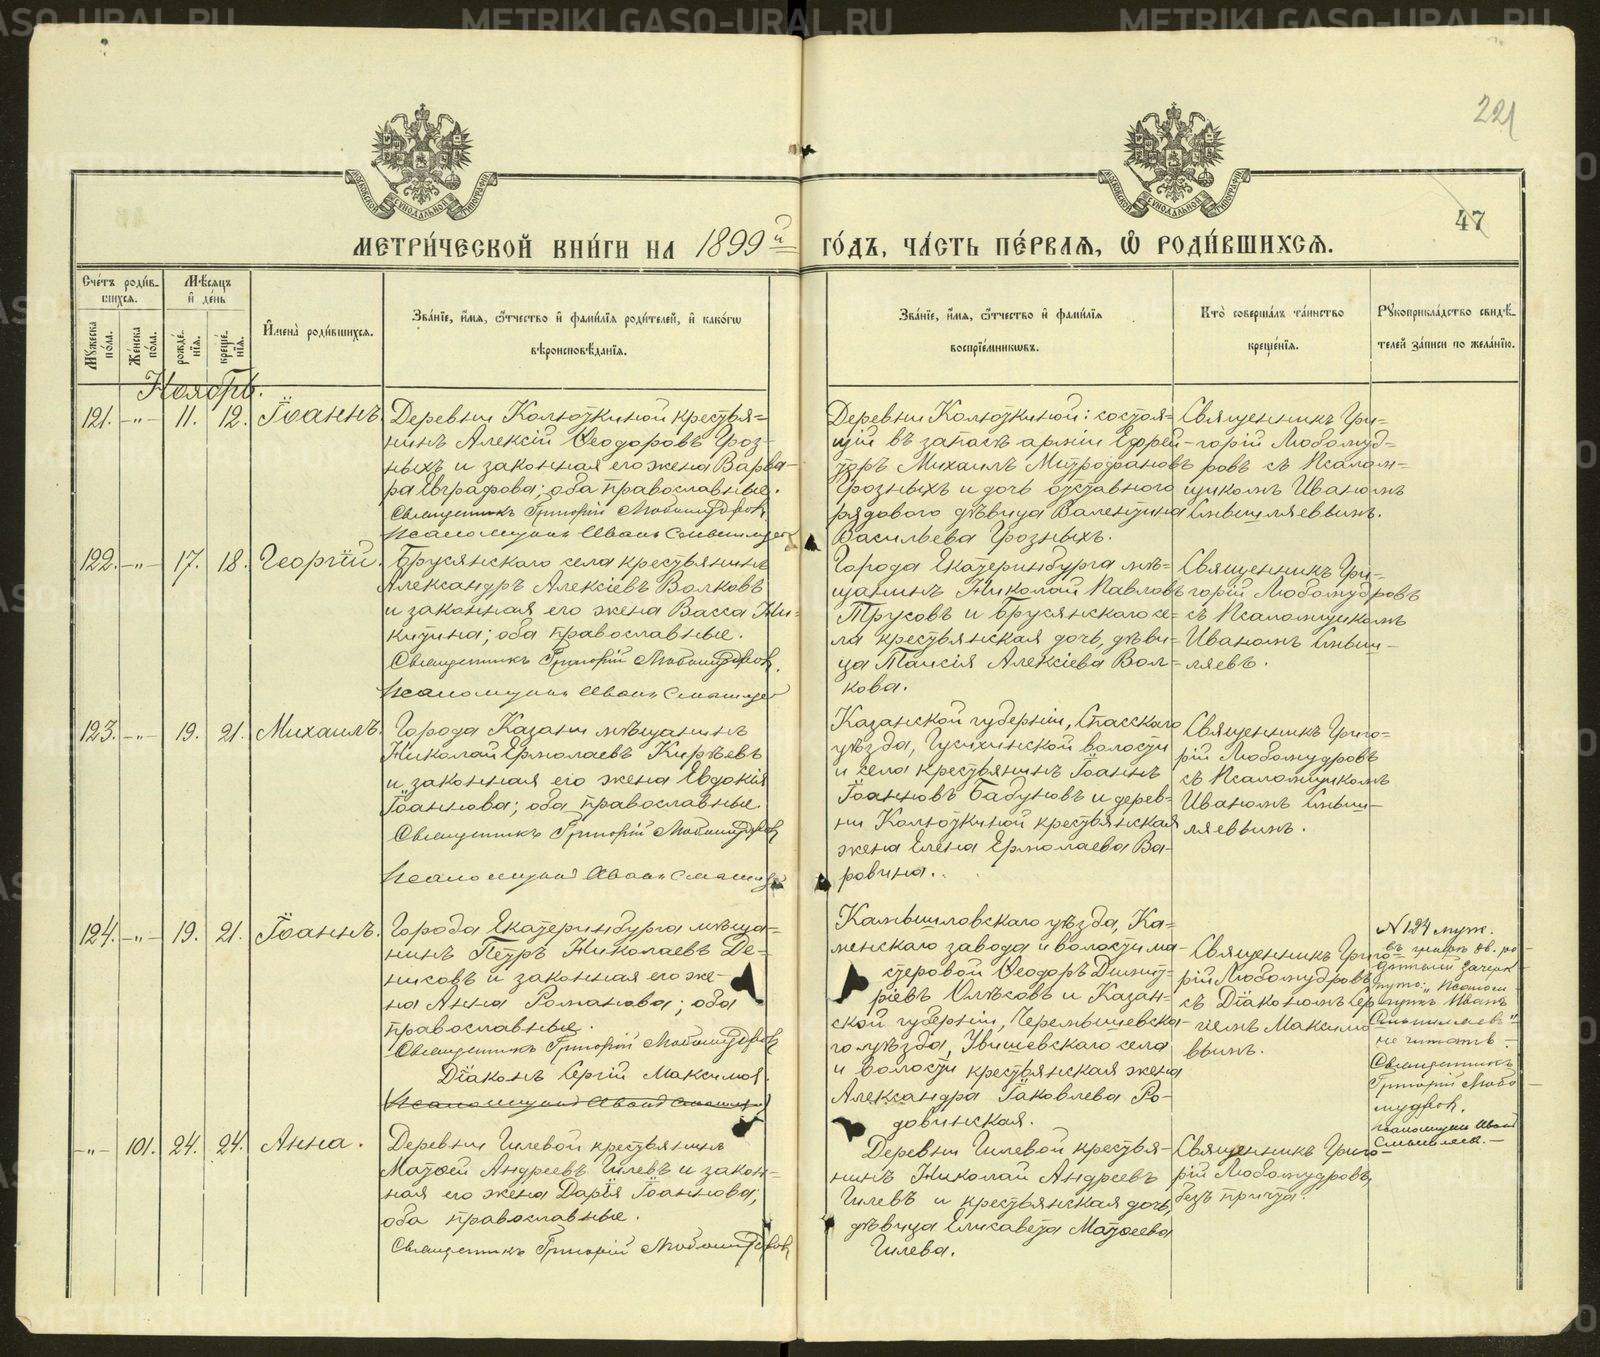 221
47
МЕТРИ́ЧЕСКОЙ КНИ́ГИ НА 1899й ГО́ДЪ, ЧА́СТЬ ПЕ́РВАЯ, Ѡ РОДИ́ВШИХСЯ.
Сче́тъ роди́в-
шихся.
Мѣ́сяцъ
и҆ де́нь
Мꙋ́жеска по́ла.
Же́нска по́ла.
рожде́нїя.
креще́нїя.
И҆мена̀ роди́вшихся.
Зва́нїе, и҆́мя, ѻ҆́тчество и҆ фами́лїя роди́телей, и҆ како́гѡ
вѣроисповѣ́данїя.
Зва́нїе, и҆́мя, ѻ҆́тчество и҆ фами́лїя
воспрїе́мникѡвъ.
Кто̀ соверша́лъ та́инство
креще́нїя.
Рꙋкоприкла́дство свидѣ́-
телей за́писи по жела́нїю.
Ноябрь.
121. -"- 11. 12. Іоаннъ.
Деревни Колюткиной крестья=
нинъ Алексій Ѳеодоровъ Гроз=
ныхъ и законная его жена Варва-
ра Евграфова; оба православные.
Священникъ Григорій Любомудровъ
Псаломщикъ Иванъ Смышляевъ
Деревни Колюткиной: состоя-
щій въ запасѣ арміи Ефрей-
торъ Михаилъ Митрофановъ
Грозныхъ и дочь отставного
рядового дѣвица Валентина
Васильева Грозныхъ.
Священникъ Гри-
горій Любомуд-
ровъ съ Псалом=
щикомъ Иваномъ
Смышляевымъ.
122. -"- 17. 18. Георгій.
Брусянского села крестьянинъ
Александръ Алексіевъ Волковъ
и законная его жена Васса Ни-
китина; оба православные.
Священникъ Григорій Любомудровъ.
Псаломщикъ Иванъ Смышляевъ
Города Екатеринбурга мѣ-
щанинъ Николай Павловъ
Трусовъ и Брусянскаго се-
ла крестьянская дочь, дѣви-
ца Таисія Алексіева Вол-
кова.
Священникъ Гри-
горій Любомудровъ
съ Псаломщикомъ
Иваномъ Смыш-
ляевъ.
123. -"- 19. 21. Михаилъ.
Города Казани мѣщанинъ
Николай Ермолаевъ Кирѣевъ
и законная его жена Евдокія
Іоаннова; оба православные.
Священникъ Григорій Любомудровъ
Псаломщикъ Иванъ Смышляевъ
Казанской губерніи, Спасскаго
уѣзда, волости
и села крестьянинъ Іоаннъ
Іоанновъ Бабуновъ и дерев-
ни Колюткиной крестьянская
жена Елена Ермолаева Ва-
ровина.
Священникъ Григо=
рій Любомудровъ
съ Псаломщикомъ
Иваномъ Смыш-
ляевымъ.
124. -"- 19. 21. Іоаннъ.
Города Екатеринбурга мѣща-
нинъ Петръ Николаевъ Де-
никовъ и законная его же-
на Анна Романова; оба
православные.
Священникъ Григорій Любомудровъ
Діаконъ Сергій Максимов.
Псаломщикъ Иванъ Смышляевъ
Камышловскаго уѣзда, Ка-
менскаго завода и волости ма-
стеровой Ѳеодоръ Димит-
ріевъ и Казан-
ской губерніи,
го уѣзда, села
и волости крестьянская жена
Александра Іаковлева Ро-
довинская.
Священникъ Григо-
рій Любомудровъ,
съ Діакономъ Сер-
гіемъ Максимо-
вымъ.
№ 124 муж.
въ графѣ зв. ро-
дителей зачерк-
нуто: "Псалом-
щикъ Иванъ
Смышляевъ"
не читать. -
Священникъ
Григорій Любо-
мудров.
псаломщикъ Иванъ
Смышляевъ. -
-"- 101. 24. 24. Анна.
Деревни Гилевой крестьянинъ
Матѳей Андреевъ Гилевъ и закон-
ная его жена Дарія Іоаннова;
оба православные.
Священникъ Григорій Любомудровъ
Деревни Гилевой крестья-
нинъ Николай Андреевъ
Гилевъ и крестьянская дочь,
дѣвица Елисавета Матѳеева
Гилева.
Священникъ Григо-
рій Любомудровъ,
безъ причта.
METRIKI.GASO-URAL.RU